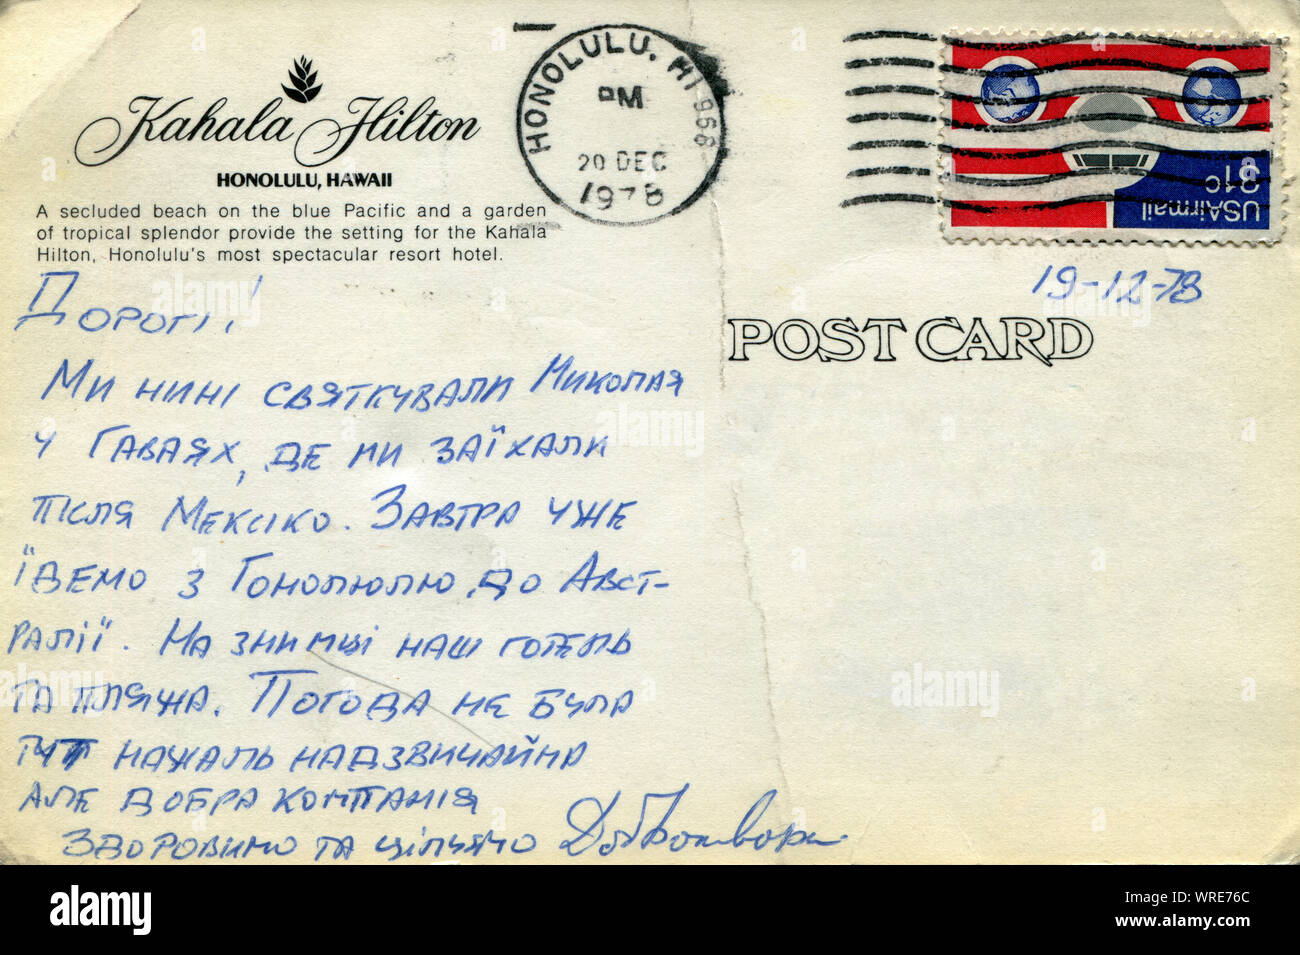 Kahala Hilton
HONOLULU, HAWAII
A secluded beach on the blue Pacific and a garden
of tropical splendor provide the setting for the Kahala
Hilton, Honolulu's most spectacular resort hotel.
HONOLULU, HI 968
PM
20 DEC
1978
USAirmail
31c
19-12-78
POST CARD
Дорогі!
Ми нині святкували Миколая
у Гаваях, де ми заїхали
після Мексіко. Завтра уже
їдемо з Гонолюлю до Авст-
ралії. На знимці наш готель
та пляжа. Погода не була
тут нажаль надзвичайна
але добра компанія
Здоровимо та цілуємо
alamy
Image ID: WRE76C
www.alamy.com